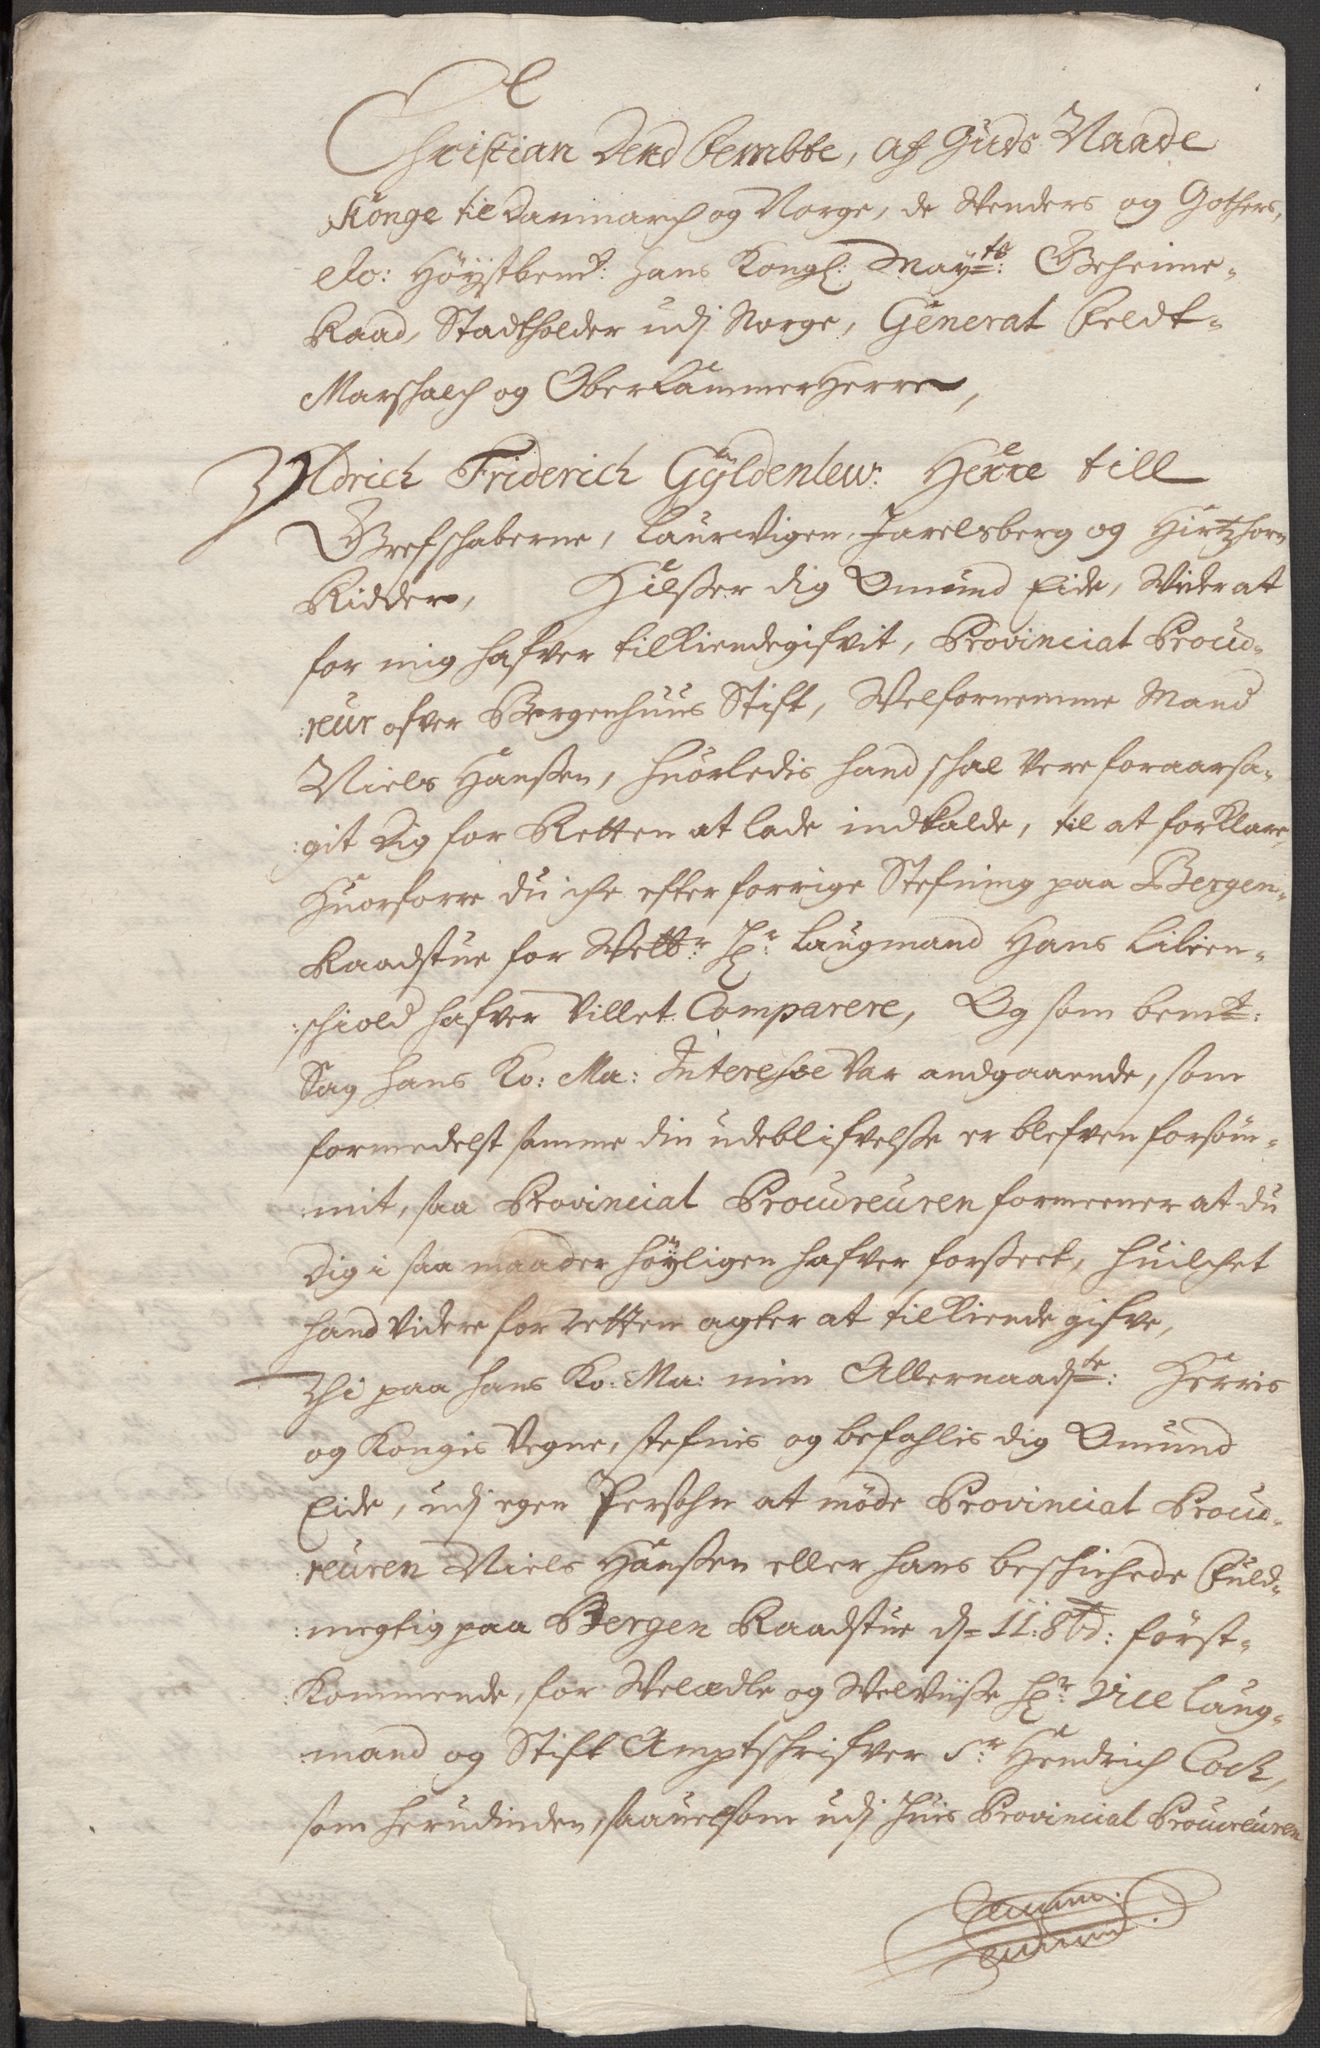 Christian dend Fembte, af Guds Naade
Konge til Danmarch og Norge, de Wenders og Gothers,
etc: Höystbemt: hans Kongl: Maytz: Geheime-
Raad, Stadtholder udj Norge, General Feldt-
Marschalch og OberCammerHerre,
Uldrich Friderich Gÿldenlew: Herre till
Grefschaberne, Laurwigen, Jarelsberg og Hirtzhorn
Ridder, Hilsser dig Omund Eide, Wider at
for mig hafver tilkiendegifvit, Provincial Procu-
:reur ofver Bergenhuus Stift, Welfornemme Mand
Niels Hanssen, huorledis hand schal vere foraarsa-
:git dig for Retten at lade indkalde, til at forklare,
Huorforre du iche efter forrige Stefning paa Bergen-
Raadstue for Welbr: Hr: Laugmand Hans Lilien-
:schiold hafver villet Comparere, Og som bemt:
Sag hans Ko: Ma: Interesse var andgaaende, som
formedelst samme din udeblifvelsse er blefven forsöm-
mit, saa Provincial Procureuren formeener at du
dig i saa maader höyligen hafver forsseet, huilchet
hand videre for Retten agter at tilkiendegifve,
Thi paa hans Ko: Ma: min Allernaadste: Herris
og Kongis Vegne, stefnis og befahlis dig Omund
Eide, udj egen Persohn at möde Provincial Procu-
:reuren Niels Hanssen eller hans beschichede Fuld-
:megtig paa Bergen Raadstue d= 11: 8bd: först-
Kommende, for Welædle og Welviisse Hr: Vice Laug-
:mand og Stift Amptschrifver Sr: Hendrich Cock,
som herudinden, saauelsom udj huis Provincial Procureuren